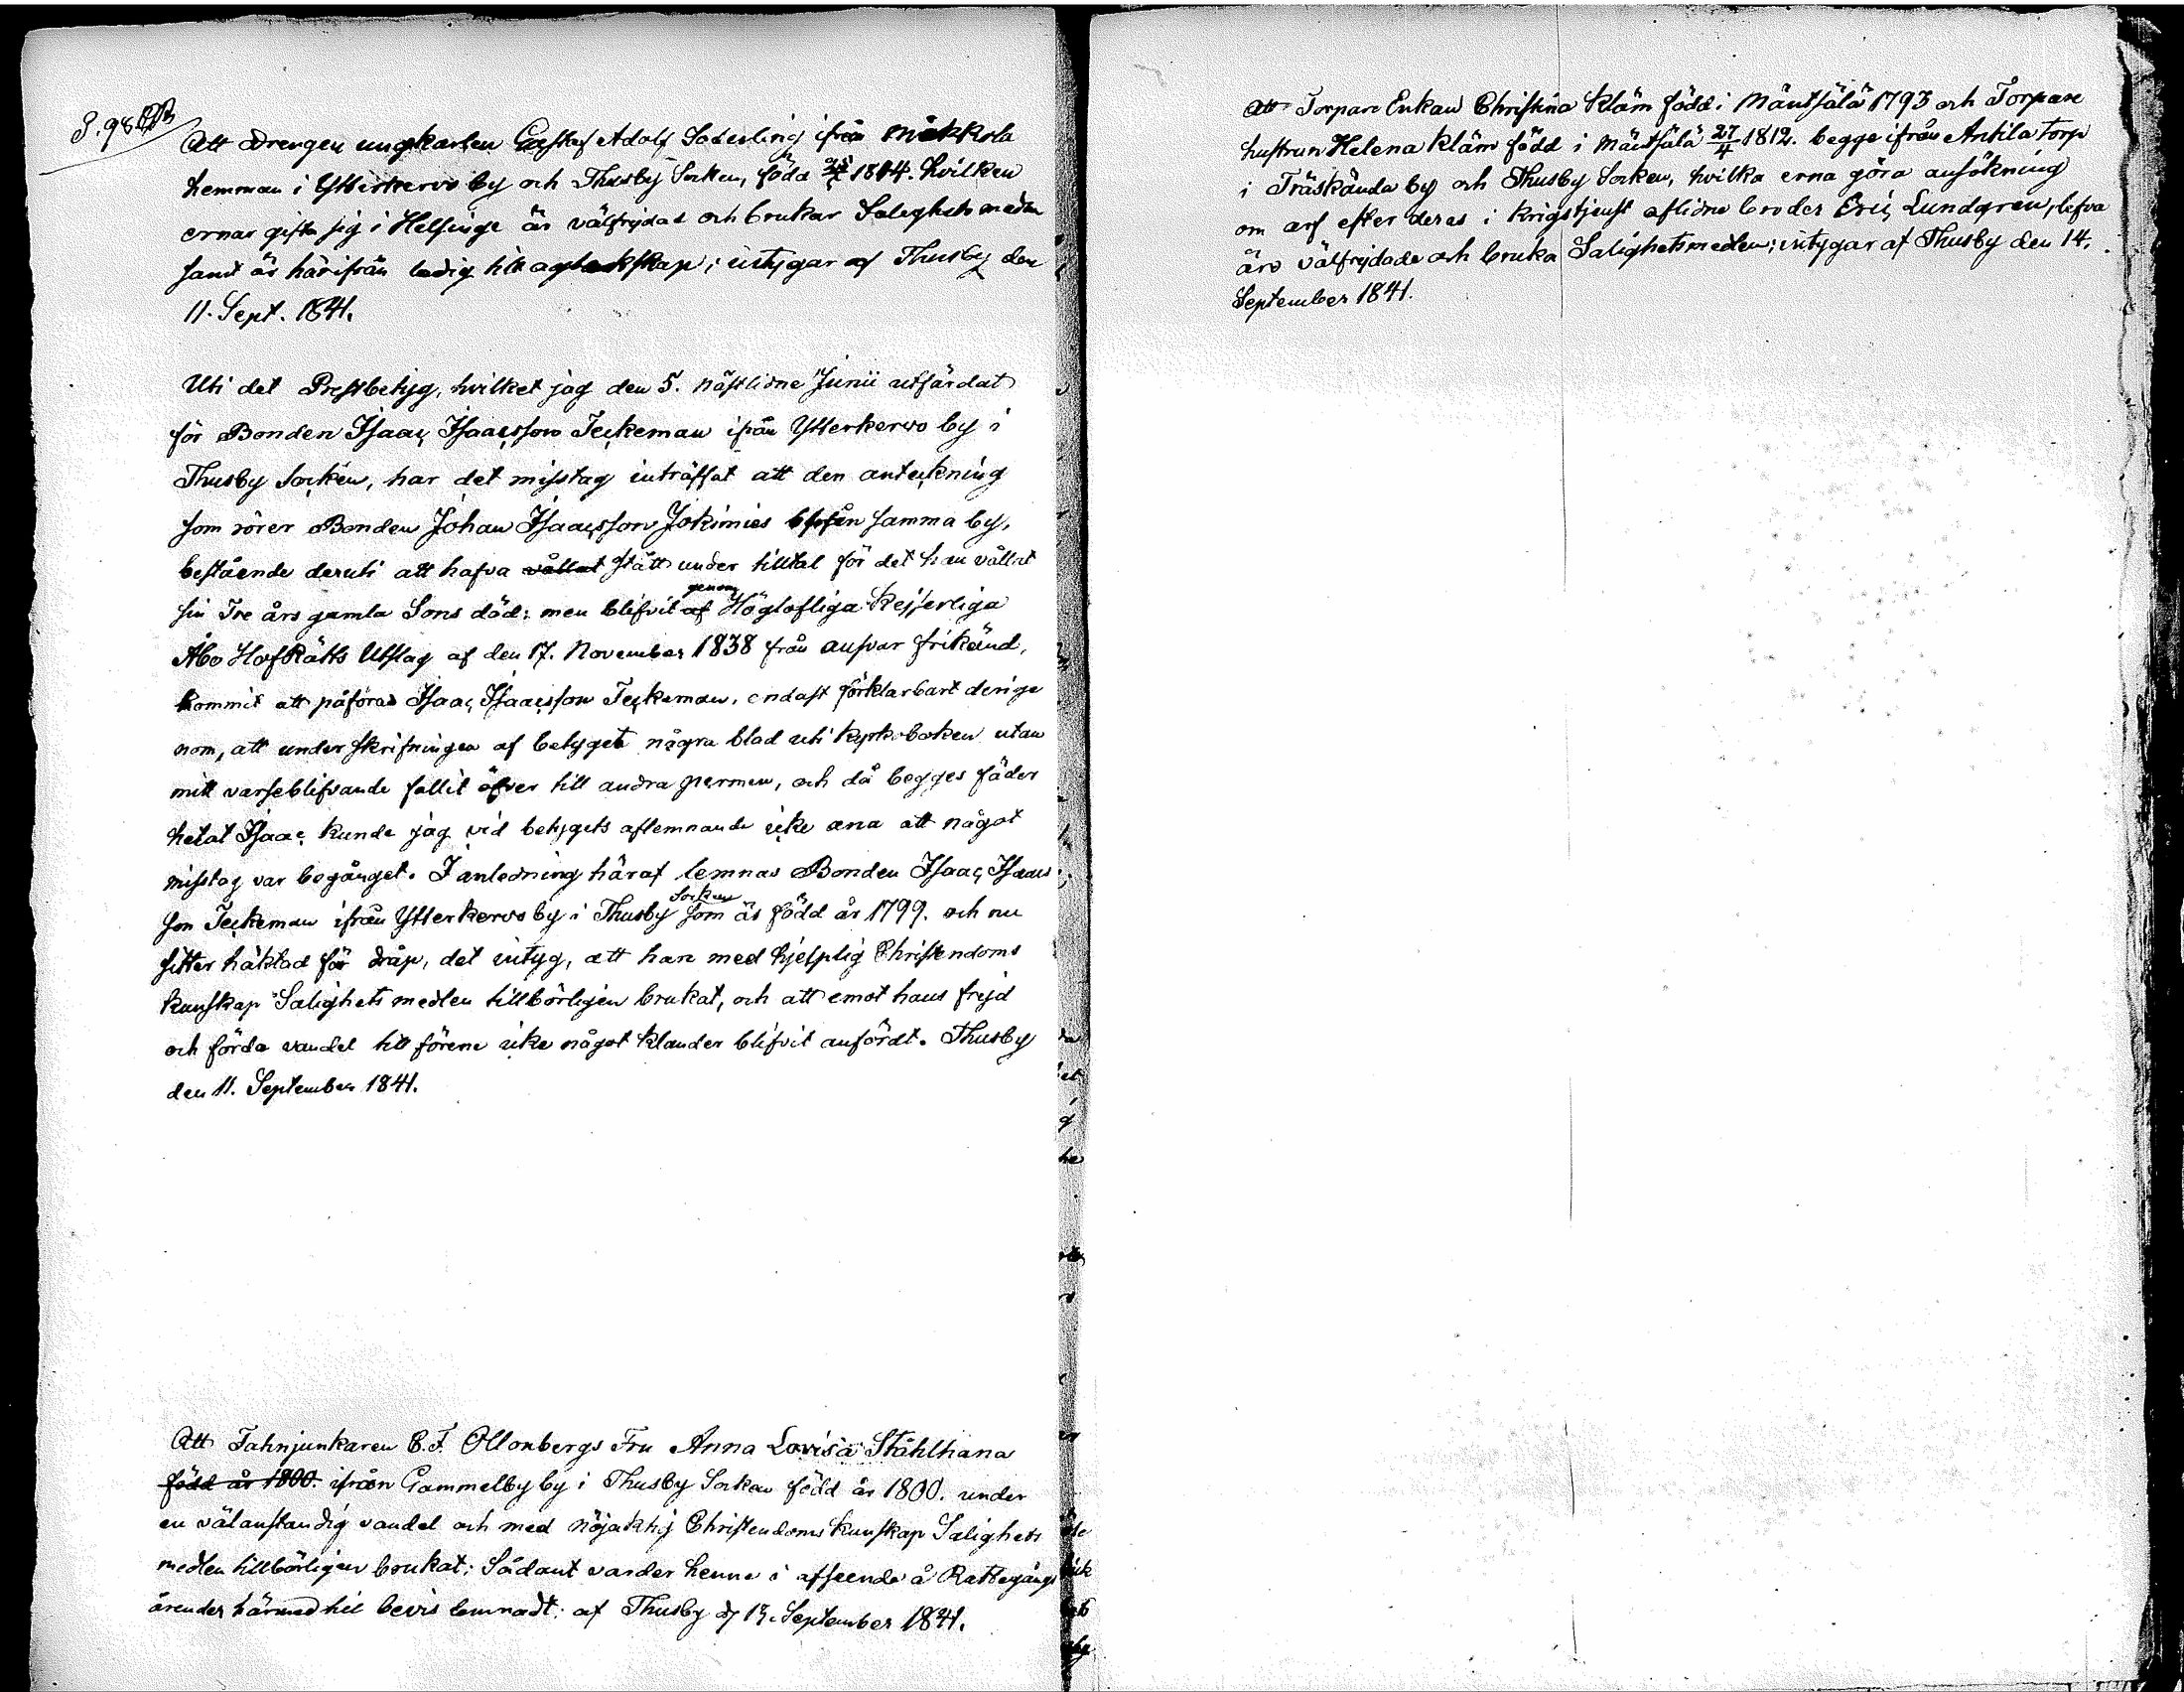 S. 98
Att Drengen ungkarlen Gustaf Adolf Söderling ifrån Mikkola
hemman i Ytterkervo by och Thusby Socken, född 1814. hvilken
ernar gifta sig i Helsinge är välfrejdad och brukar Salighets medlen
samt är härifrån ledig till agtenskap; intygar af Thusby den
11. Sept. 1841.
Uti det Prestbetyg, hvilket jag den 5. nästlidne Junii utfärdat
för Bonden Isaac Isaacsson Teckeman ifrån Ytterkervo by i
Thusby Socken, har det misstag inträffat att den anteckning
som rörer Bonden Johan Isaacsson Jokimies ifrån samma by,
bestående deruti att hafva vållat stått under tilltal för det han vållat
sin Tre års gamla Sons död; men blifvit af genom Höglofliga Kejserliga
Åbo HofRätts Utslag af den 17. November 1838 från ansvar frikänd,
kommit att påföras Isaac Isaacsson Teckeman, endast förklarbart derige
nom, att under skrifningen af betyget några blad uti kyrkoboken utan
mitt varseblifvande fallit öfver till andra permen, och då begges fäder
hetat Isaac kunde jag vid betygets aflemnande icke ana att något
misstag var begånget. I anledning häraf lemnas Bonden Isaac Isaacs
son Teckeman ifrån Ytterkervo by i Thusby Socken som är född år 1799. och nu
sitter häktad för dråp, det intyg, att han med hjelplig Christendoms
kunskap Salighets medlen tillbörligen brukat, och att emot hans frejd
och förda vandel till förene icke något klander blifvit anfördt. Thusby
den 11. September 1841.
Att Fahnjunkaren C. F. Ollonbergs Fru Anna Lovisa Ståhlhana
född år 1800. ifrån Gammelby by i Thusby Socken född år 1800. under
en välanständig vandel och med nöjaktig Christendoms kunskap Salighets
medlen tillbörligen brukat; Sådant varder henne i afseende å Rättegångs
ärender härmed till bevis lemnadt; af Thusby d 13. September 1841.
Att Torpare Enkan Christina Kläm född i Mäntsälä 1793 och Torpare
hustrun Helena Kläm född i Mäntsälä 27/4 1812. begge ifrån Antila torp
i Träskända by och Thusby Socken, hvilka erna göra ansökning
om arf efter deras i krigstjenst aflidne broder Eric Lundgren, lefva
äro välfrejdade och bruka Salighetsmedlen; intygar af Thusby den 14.
September 1841.